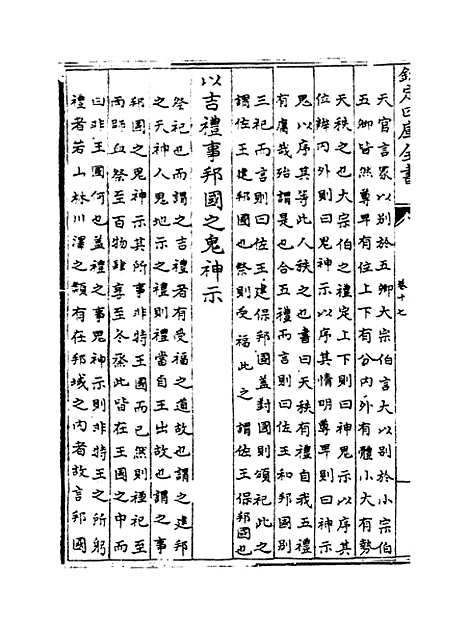 欽定四庫全書
卷十七
天官言冡以別於五卿大宗伯言大以別於小宗伯
五卿皆然尊卑有位上下有分內外有體小大有勢
天秩之也大宗伯之禮定上下則曰神鬼示以序其
位辨內外則曰鬼神示以序其情明尊卑則曰神示
鬼以序其等此人秩之也書曰天秩有禮自我五禮
有庸哉殆謂是也合五禮而言則曰佐王和邦國別
三祀而言則曰佐王建保邦國蓋對國則頌祀此之
謂佐王建邦國也祭則受福此之謂佐王保邦國也
以吉禮事邦國之鬼神示
祭祀也而謂之吉禮者有受福之道故也謂之建邦
之天神人鬼地示之禮則禮當自王出故也謂之事
邦國之鬼神示其所事非特王國而已然則禋祀至
而臨血祭至百物肆享至冬烝此皆在王國之中而
曰非王國何也蓋禮之事鬼神示則非特王之所躬
禮者若山林川澤之類有在邦域之內者故言邦國